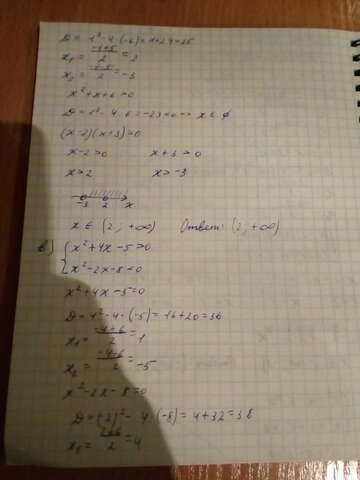 D = 1² - 4·(-6) = 1+24 = 25
x₁ = (-1+5)/2 = 2
x₂ = (-1-5)/2 = -3
x² + x + 6 > 0
D = 1² - 4·6 = -23 < 0 => x ∈ ∅
(x-2)(x+3) > 0
x-2 > 0 x+3 > 0
x > 2 x > -3
-3 2 x
x ∈ (2; +∞) Ответ: (2; +∞)
в) { x² + 4x - 5 > 0
x² - 2x - 8 < 0
x² + 4x - 5 = 0
D = 4² - 4·(-5) = 16+20 = 36
x₁ = (-4+6)/2 = 1
x₂ = (-4-6)/2 = -5
x² - 2x - 8 = 0
D = (-2)² - 4·(-8) = 4+32 = 36
x₁ = (2+6)/2 = 4